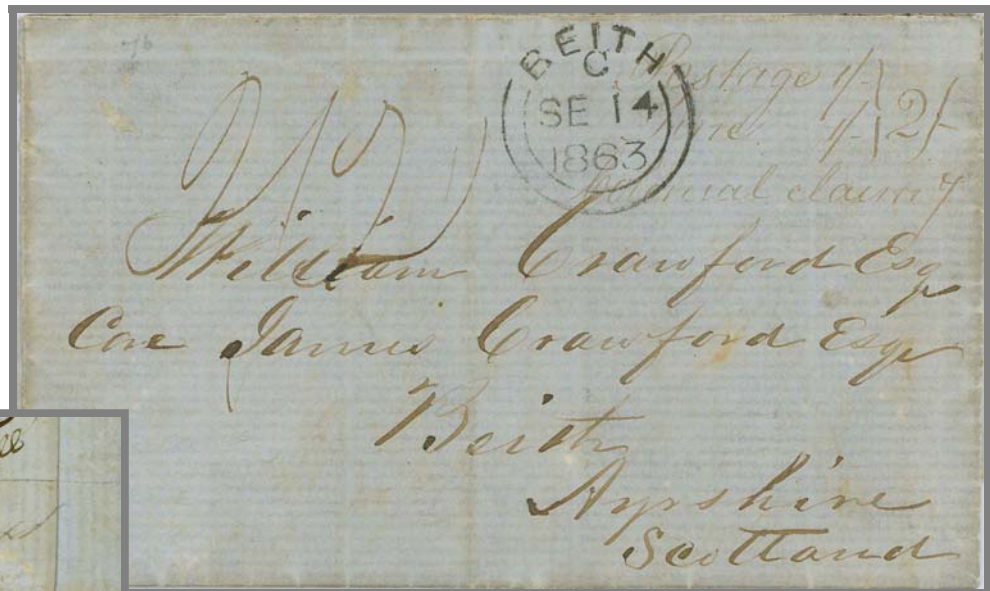 BEITH
C
SE 14
1863
Postage 1/-
Fine 1/- 2/-
Colonial claim 7
William Crawford Esqr
Care James Crawford Esqr
Beith
Ayrshire
Scotland